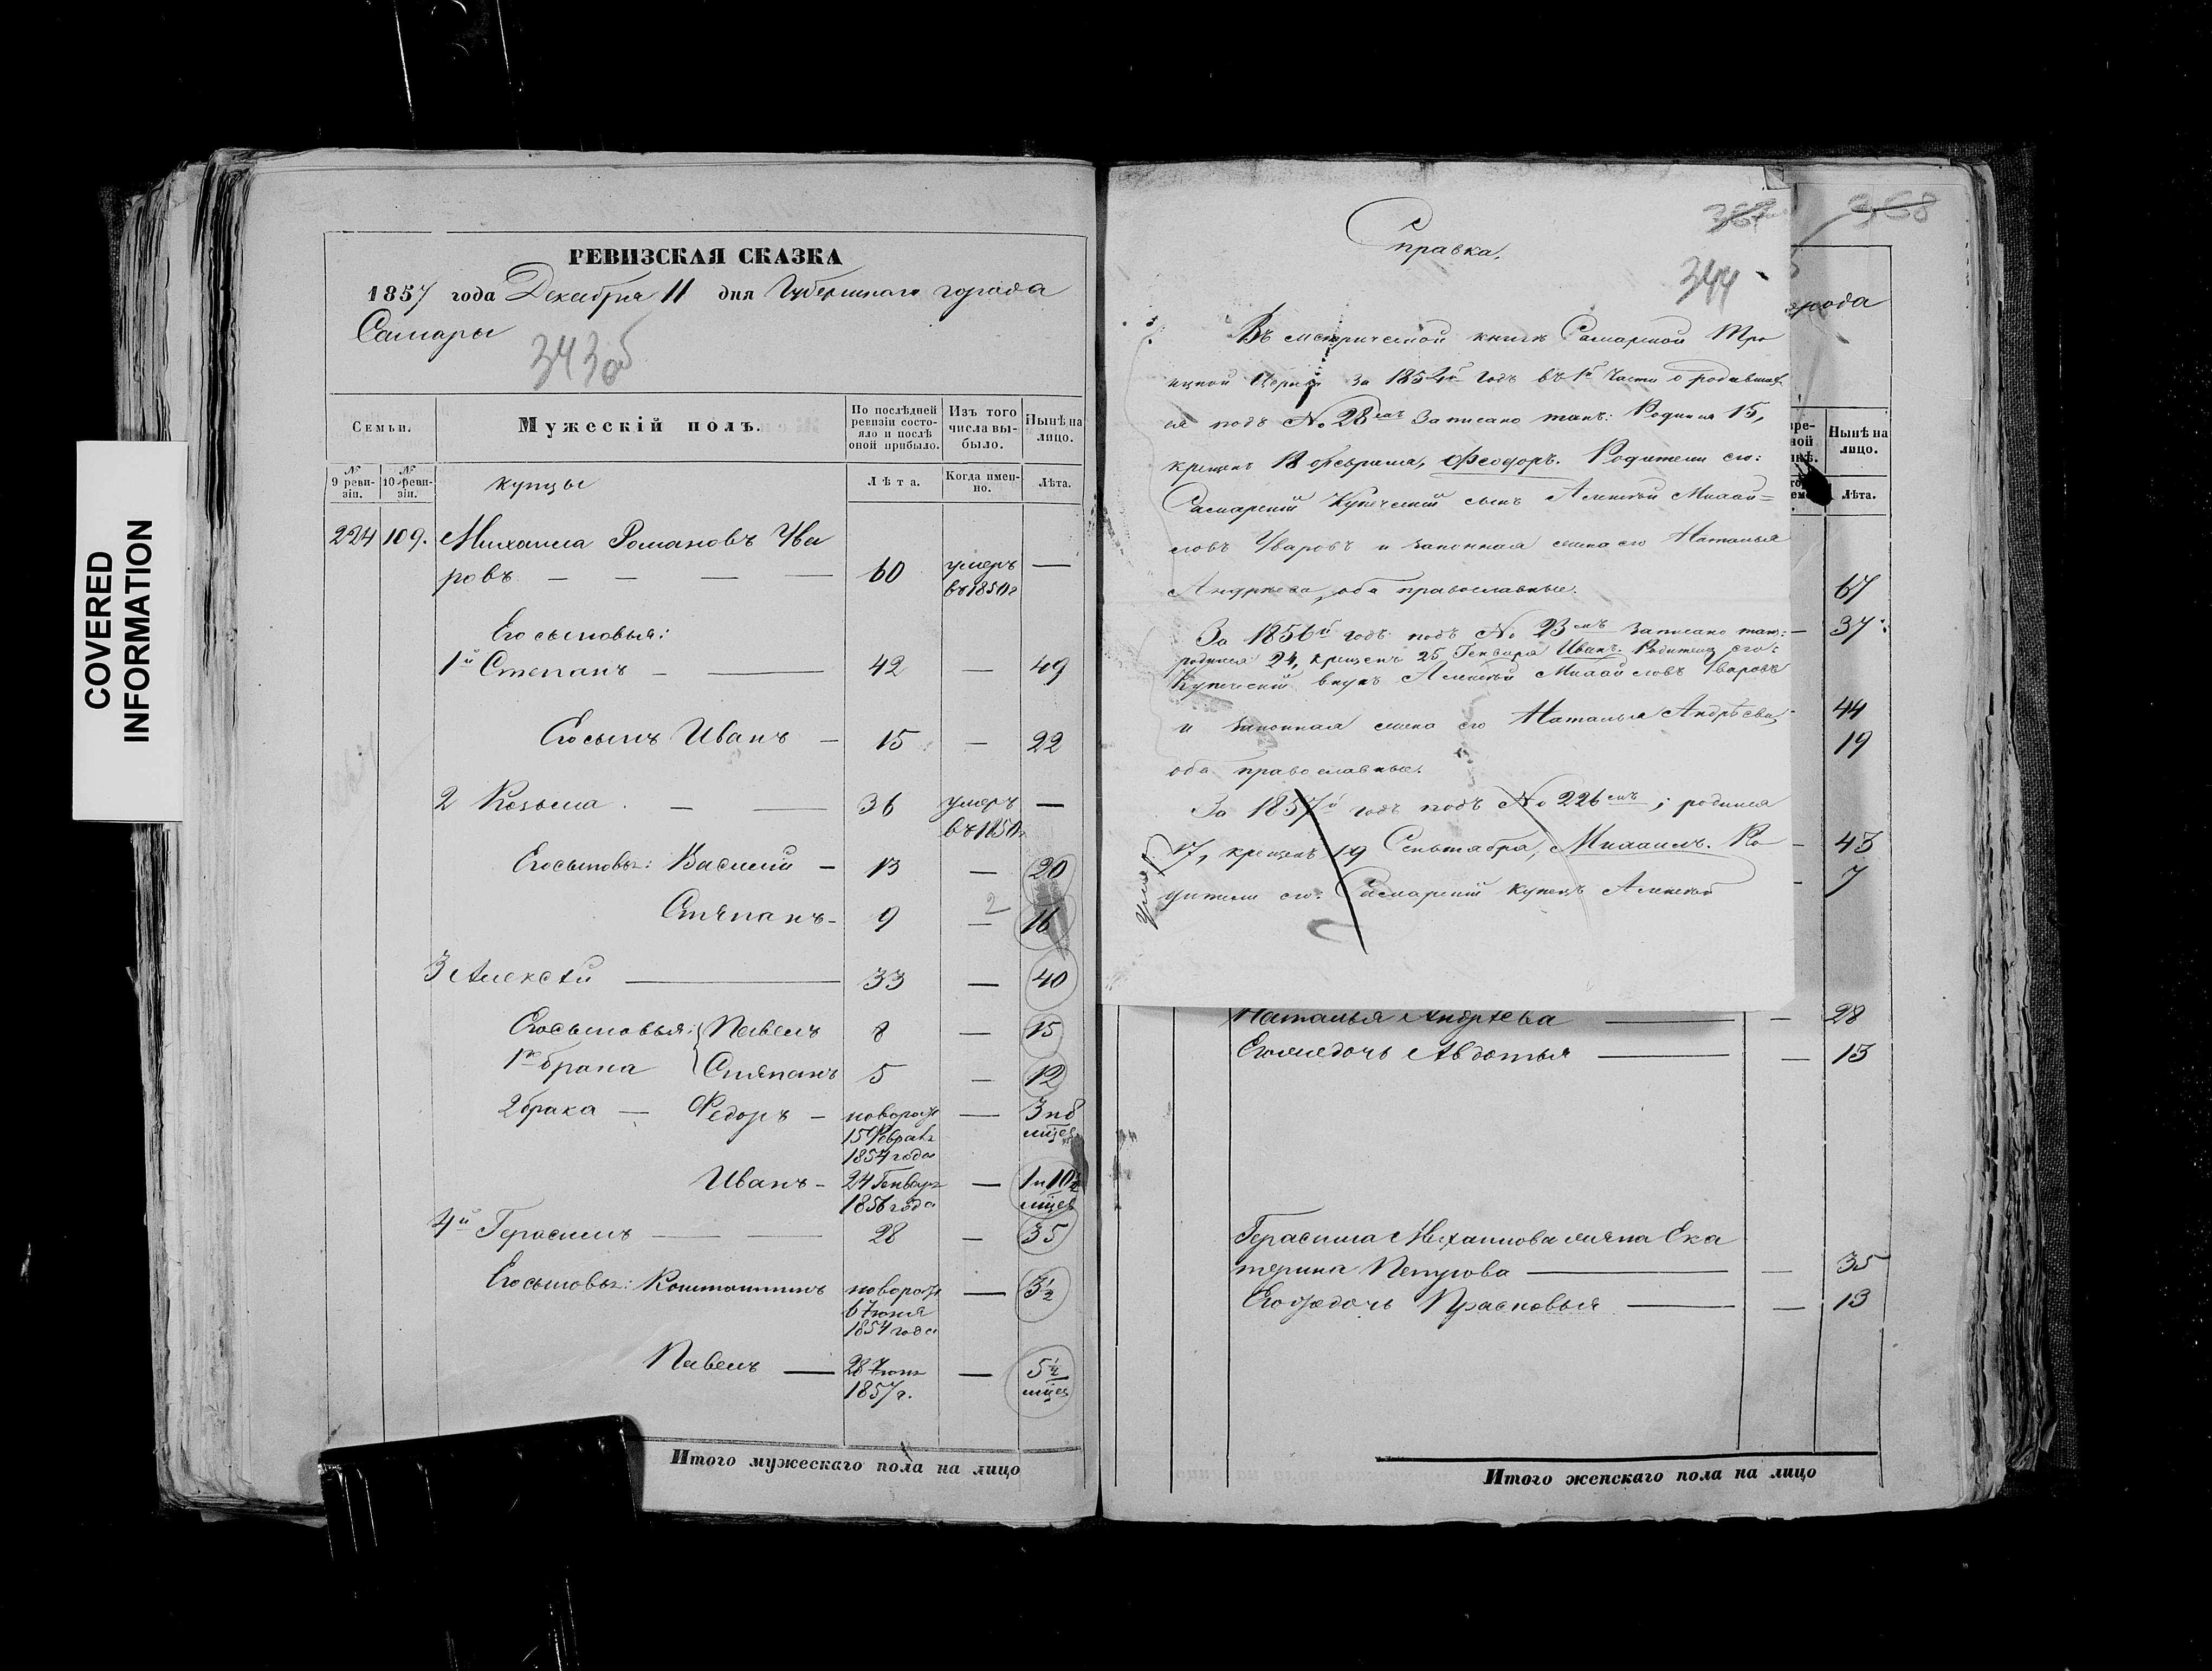 COVERED
INFORMATION
РЕВИЗСКАЯ СКАЗКА
1857 года Декабря 11 дня Губернскаго города
Самары
343об
Семьи.
Мужескій полъ.
По послѣдней ревизіи состояло и послѣ оной прибыло.
Изъ того числа выбыло.
Нынѣ на лицо.
№ 9 ревизіи.
№ 10 ревизіи.
Лѣта.
Когда именно.
Лѣта.
купцы
224 109. Михаила Романовъ Ува
ровъ — — — — 60 умеръ въ 1850г —
Его сыновья:
1й Степанъ — — 42 — 49
Его сынъ Иванъ — 15 — 22
2 Козьма — — 36 умеръ въ 1850г —
Его сыновья: Василий — 13 — 20
Степанъ — 9 — 2 16
3 Алексѣй — 33 — 40
Его сыновья: Павелъ 8 — 15
1го брака Степанъ 5 — 12
2 брака — Федоръ — новорож 15 Феврал 1854 года — 3 10 мцев
Иванъ — 24 Генвар 1856 года — 1 и 10½ мцев
4й Герасимъ — — 28 — 35
Его сыновья: Константинъ новорож 6 Июня 1854 года — 3½
Павелъ — 28 Июня 1857 г. — 5½ мцев
Итого мужескаго пола на лицо
367
368
344
Справка.
орода
Въ метрической книгѣ Самарской Тро
ицкой Церкви за 1854й годъ въ 1й части о родивших
ся подъ № 28мъ записано такъ: Родился 15,
крещенъ 18 февраля, Феодоръ. Родители его:
Самарскій Купеческій сынъ Алексѣй Михай=
ловъ Уваровъ и законная жена его Наталья
Андреева, оба православные.
За 1856й годъ подъ № 23мъ записано так:
родился 24, крещенъ 25 Генваря Иванъ. Родители его:
Купеческій внукъ Алексѣй Михайловъ Уваровъ
и законная жена его Наталья Андрѣева,
оба православные.
За 1857й годъ подъ № 226мъ; родился
17, крещенъ 19 Сентября, Михаилъ. Ро
дители его: Самарскій купецъ Алексѣй
умеръ
Нынѣ на лицо.
Лѣта.
67
37
44
19
43
7
Наталья Андреева — — 28
Его дочь Авдотья — — 13
Герасима Михаилова жена Ека
терина Петрова — — 35
Его дочь Прасковья — — 13
Итого женскаго пола на лицо